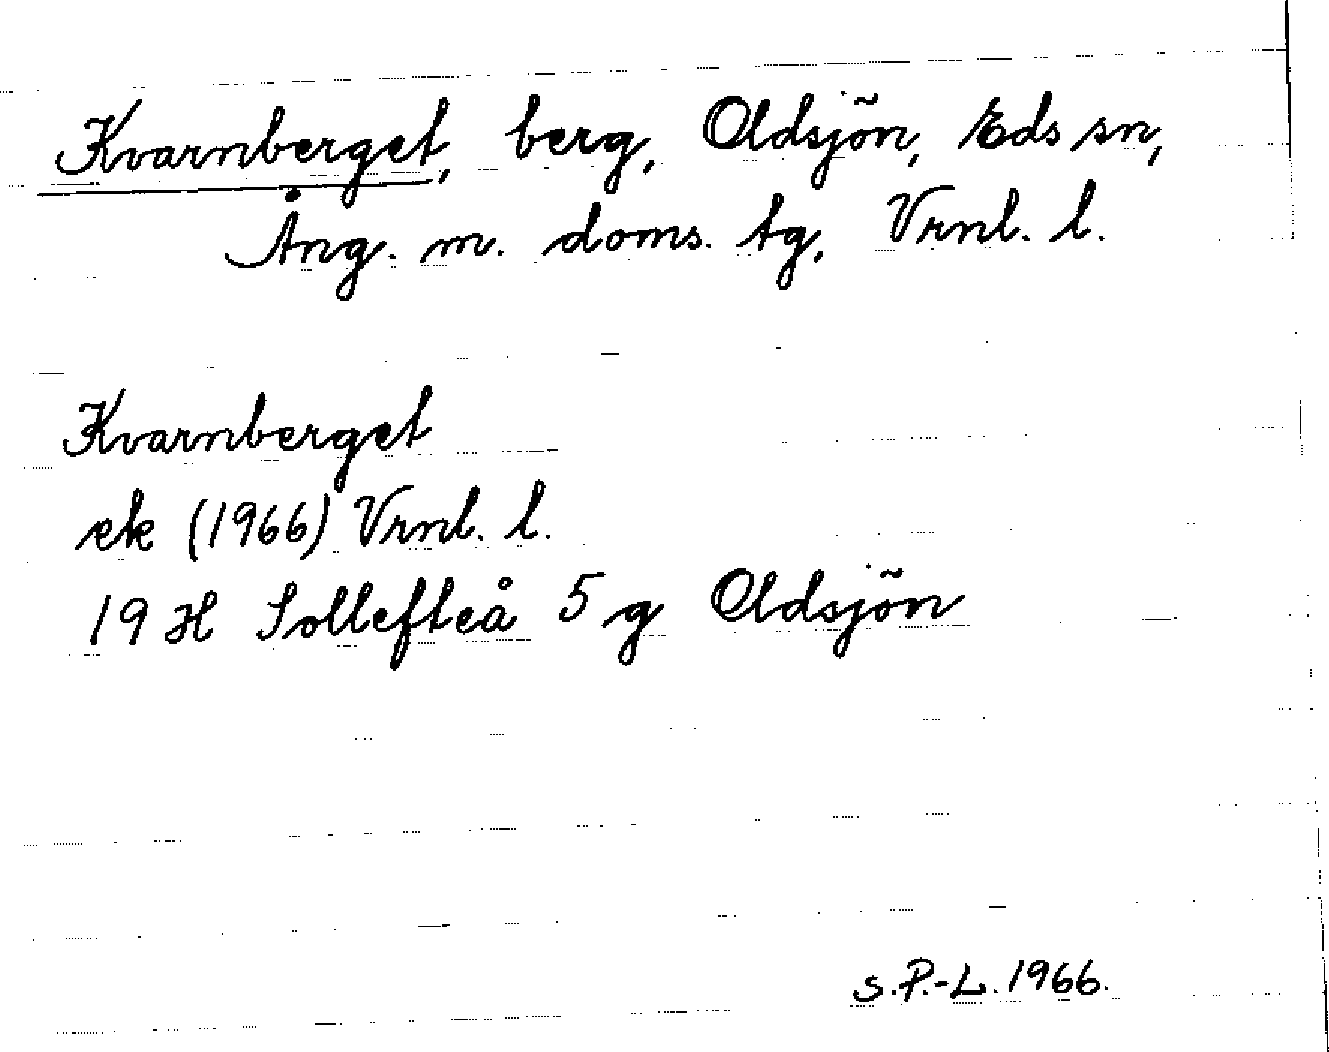 Kvarnberget, berg, Oldsjön, Eds sn,
Ång. m. doms. tg, Vrnl. l.
Kvarnberget
ek (1966) Vrnl. l.
19 H Sollefteå 5 g Oldsjön
S.P.-L. 1966.